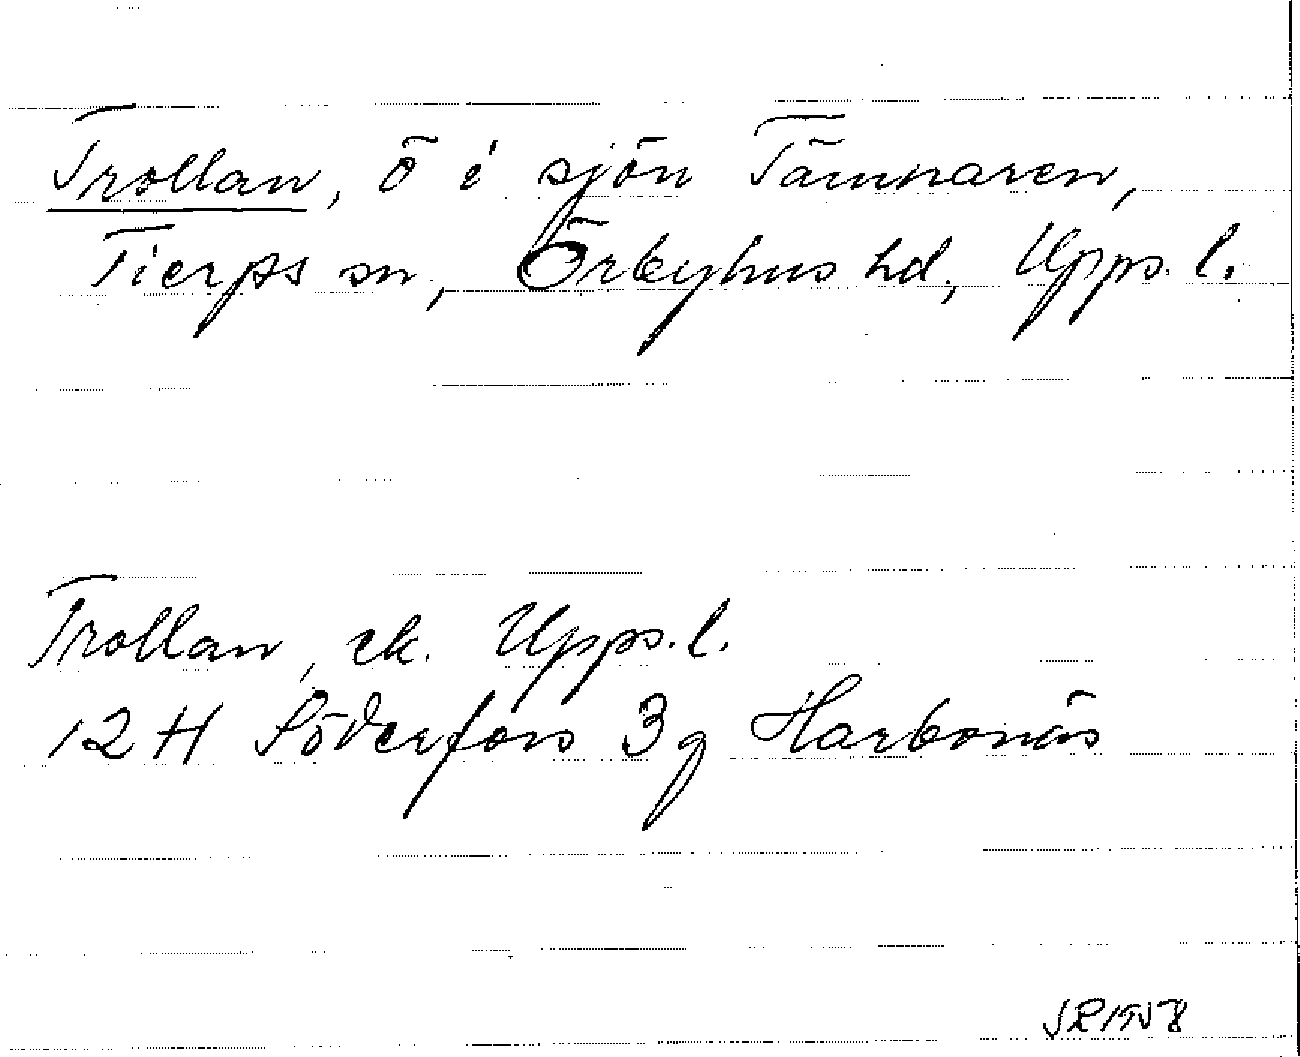 Trollan, ö i sjön Tämnaren,
Tierps sn, Örbyhus hd, Upps. l.
Trollan, ek. Upps. l.
12 H Söderfors 3 g Harbonäs